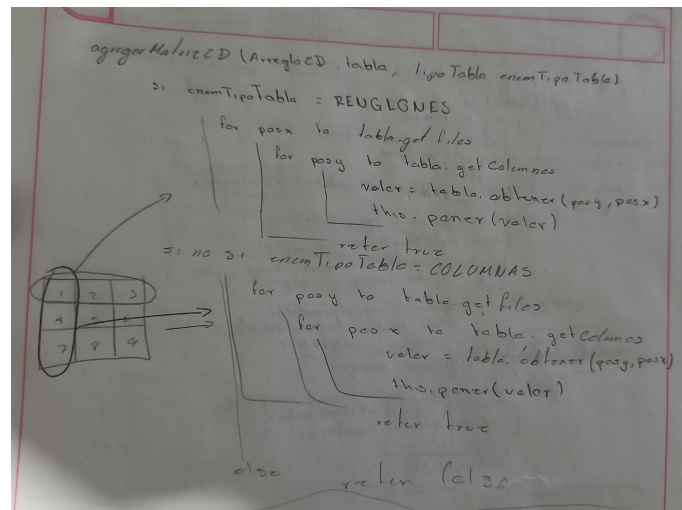 agregarMatriz2D (Arreglo2D tabla, TipoTabla enumTipoTabla)
si enumTipoTabla = RENGLONES
for posx to tabla.getfilas
for posy to tabla.getColumnas
valor = tabla.obtener(posy, posx)
this.poner(valor)
reter true
si no si enumTipoTabla = COLUMNAS
1 2 3
4 5 6
7 8 9
for posy to tabla.getfilas
for posx to tabla.getColumnas
valor = tabla.obtener(posy, posx)
this.poner(valor)
reter true
else reter false